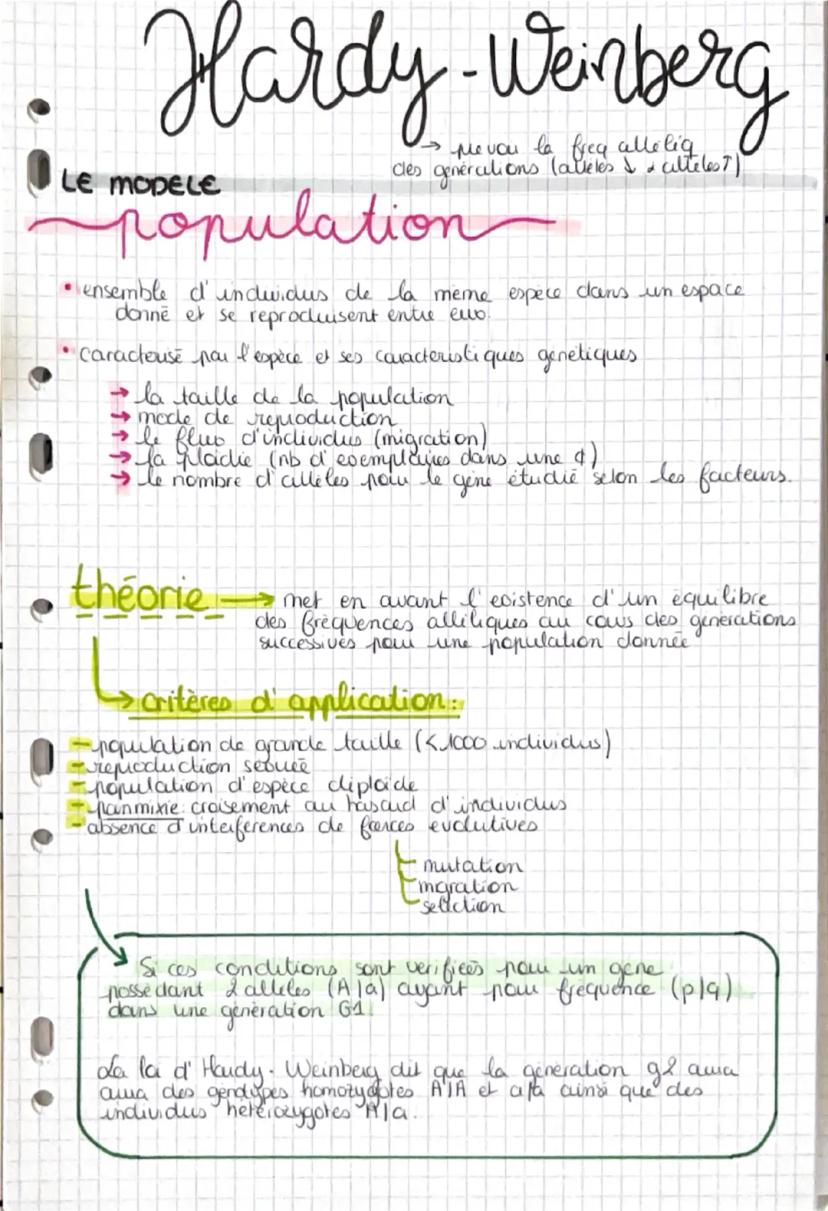 Hardy-Weinberg
→ prevoit la freq alleliq
des générations (alleles ↓ 2 allèles ↑)
LE MODELE
population
• ensemble d'individus de la même espèce dans un espace
donné et se reproduisent entre eux.
• caractérisé par l'espèce et ses caractéristiques génétiques
→ la taille de la population
→ mode de reproduction
→ le flux d'individus (migration)
→ la ploïdie (nb d'exemplaires dans une
→ le nombre d'allèles pour le gène étudié selon les facteurs.
théorie → met en avant l'existence d'un équilibre
des fréquences alléliques au cours des générations
successives pour une population donnée
→ critères d'application:
- population de grande taille (<1000 individus)
- reproduction sexuée
- population d'espèce diploïde
- panmixie: croisement au hasard d'individus
- absence d'interférences de forces évolutives
mutation
migration
sélection
Si ces conditions sont vérifiées pour un gène
possédant 2 alleles (A/a) ayant pour fréquence (p/q)
dans une génération G1.
La loi d'Hardy-Weinberg dit que la génération g2 aura
aura des génotypes homozygotes A/A et a/a ainsi que des
individus hétérozygotes A/a.